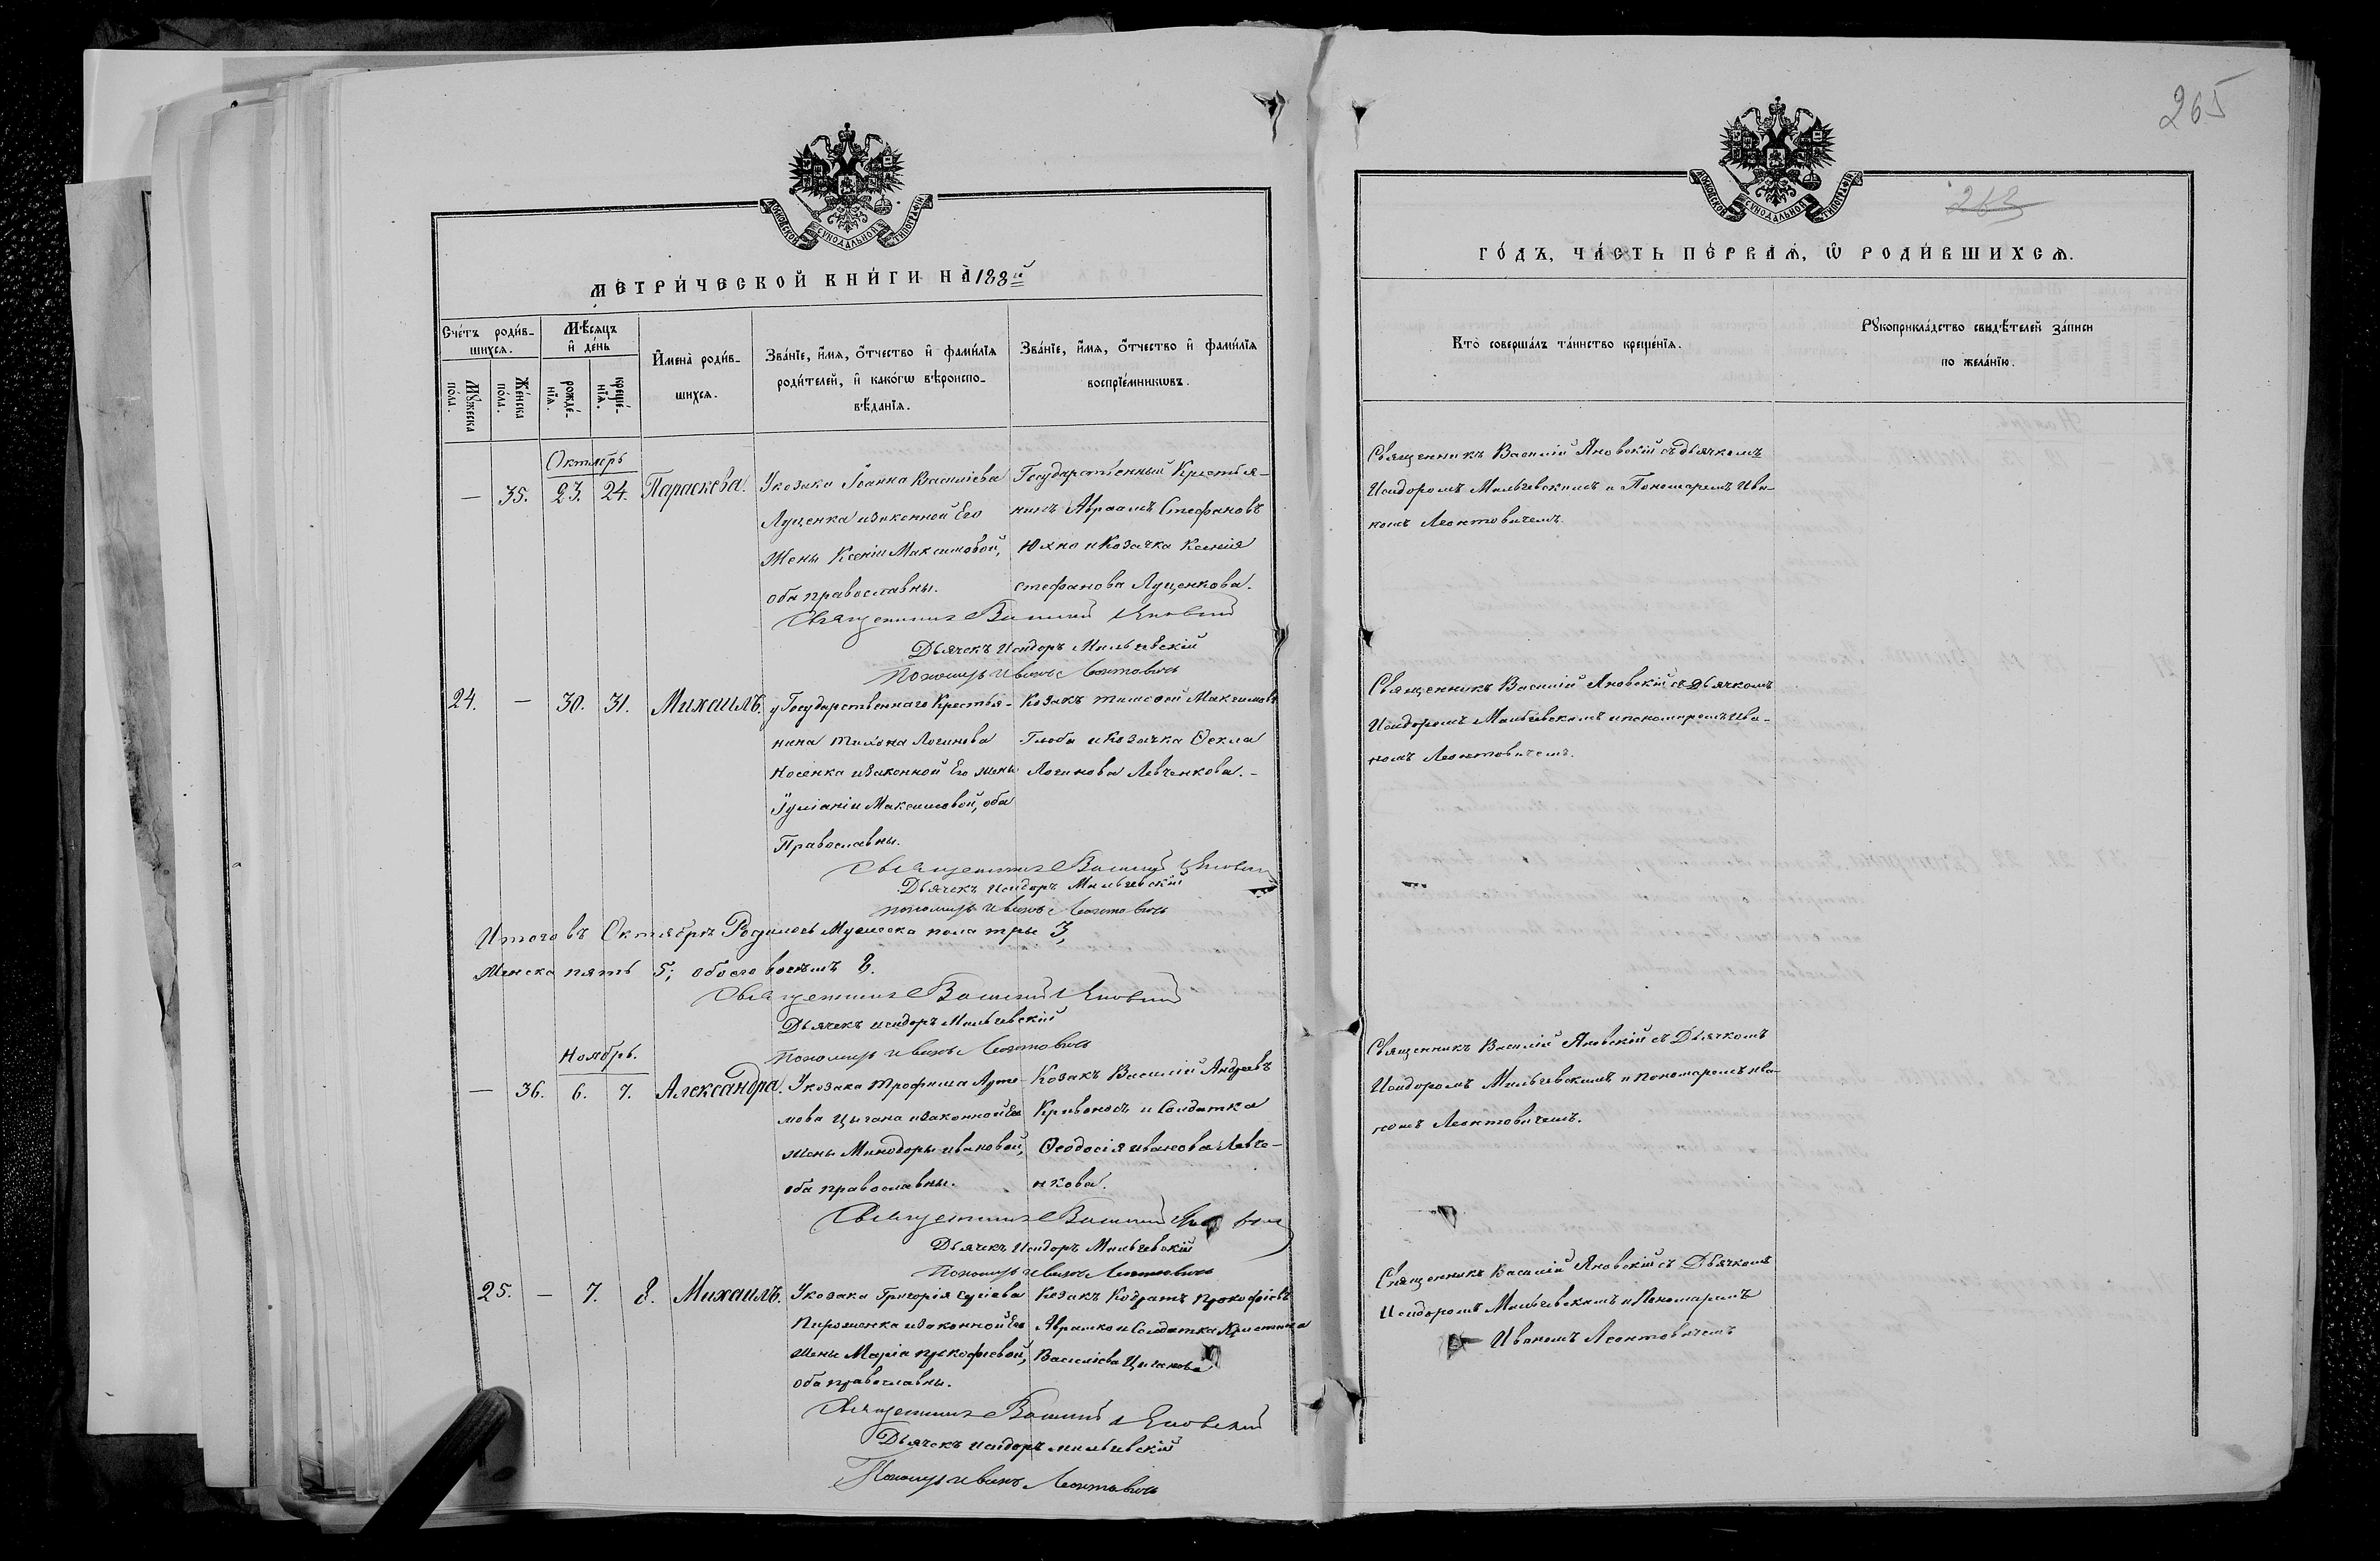 265
263
МОСКОВСКОЙ СУНОДАЛЬНОЙ ТИПОГРАФІИ
МЕТРИ́ЧЕСКОЙ КНИ́ГИ НА̀ 188
Сче́тъ роди́в-
шихсѧ.
Мꙋ́жеска по́ла.
Же́нска по́ла.
Мѣ́сѧцъ
и҆ де́нь
рожде́-
нїѧ.
креще́-
нїѧ.
И҆мена̀ роди́в-
шихсѧ.
Зва́нїе, и҆́мѧ, ѻ҆́тчество и҆ фамі́лїѧ
роди́телей, и҆ како́гѡ вѣроиспо-
вѣ́данїѧ.
Зва́нїе, и҆́мѧ, ѻ҆́тчество и҆ фамі́лїѧ
воспрїе́мникѡвъ.
Октябрь
— 35. 23. 24. Параскева.
У козака Іоанна Василіева
Луценка и законной Его
Жены Ксеніи Максимовой,
оба православны.
Государственный Крестья-
нинъ Авраамъ Стефановъ
Юхно и Козачка Ксенія
Стефанова Луценкова.
Священникъ Василій Яновскій
Дьячекъ Исидоръ Мильчевскій
Пономарь Иванъ Леонтовичь
24. — 30. 31. Михаилъ.
у Государственнаго Крестья-
нина Тихона Логинова
Носенка и законной Его жены
Іуліаніи Максимовой, оба
Православны.
Козакъ Тимофей Максимовъ
Глоба и Козачка Ѳекла
Логинова Левченкова. -
Священникъ Василій Яновскій
Дьячекъ Исидоръ Мильчевскій
пономарь Иванъ Леонтовичь
Итого въ Октябрѣ Родилось Мужеска пола три 3,
Женска пять 5; обоего восемъ 8.
Священникъ Василій Яновскій
Дьячекъ исидоръ Мильчевскій
Пономарь Иванъ Леонтовичь
Ноябрь.
— 36. 6. 7. Александра.
У козака Трофима Арте-
мова Цыгана и законной Его
жены Минодоры Ивановой,
оба православны.
Козакъ Василій Андреевъ
Кривонось и Солдатка
Ѳеодосія иванова Левче-
нкова.
Священникъ Василій Яновскій
Дьячекъ Исидоръ Мильчевскій
Пономарь Иванъ Леонтовичь
25. — 7. 8. Михаилъ.
У козака Григорія
и законной Его
жены Маріи прокофіевой,
оба православны.
Козакъ Кодратъ прокофіевъ
Аврамко и Солдатка Христина
Василіева Циганова
Священникъ Василій Яновскій
Дьячекъ исидоръ мильчевскій
Пономарь Иванъ Леонтовичь
МОСКОВСКОЙ СУНОДАЛЬНОЙ ТИПОГРАФІИ
ГО́ДЪ, ЧА́СТЬ ПЕ́РВАѦ, Ѡ҆ РОДИ́ВШИХСѦ.
Кто̀ соверша́лъ та́инство креще́нїѧ.
Рꙋкоприкла́дство свидѣ́телей за́писи
по жела́нїю.
Священникъ Василій Яновскій съ дьячкомъ
Исидоромъ Мильчевскимъ и Пономаремъ Ива-
номъ Леонтовичемъ.
Священникъ Василій Яновскій съ Дьячкомъ
Исидоромъ Мильчевскимъ и пономаремъ Ива-
номъ Леонтовичемъ.
Священникъ Василій Яновскій съ Дьячкомъ
Исидоромъ Мильчевскимъ и пономаремъ ива-
номъ Леонтовичемъ.
Священникъ Василій Яновскій съ Дьячкомъ
Исидоромъ Мильчевскимъ и Пономаремъ
Иваномъ Леонтовичемъ